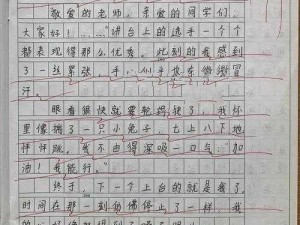 敬爱的老师，亲爱的同学们，
大家好！……"讲台上的选手一个个
都表现得那么优秀。此刻的我感到
了一丝紧张，手心似乎也在微微冒
汗。
眼看很快就要轮到我了，我怀
里像揣了一只小兔子，七上八下地
怦怦跳。我不由得深吸一口气："加
油！我能行。"
终于，下一个上台的就是我了，
时间在那一刻仿佛停止了一样，我